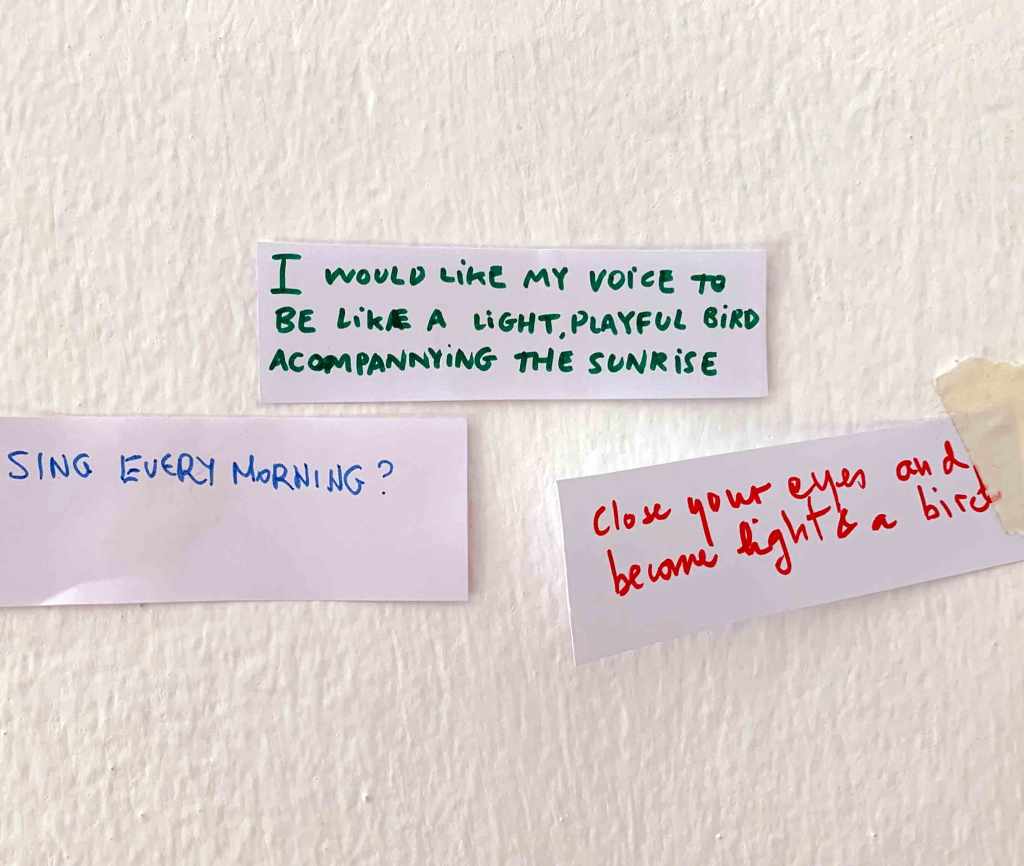 I WOULD LIKE MY VOICE TO
BE LIKE A LIGHT, PLAYFUL BIRD
ACOMPANNYING THE SUNRISE
SING EVERY MORNING?
close your eyes and
become light & a bird